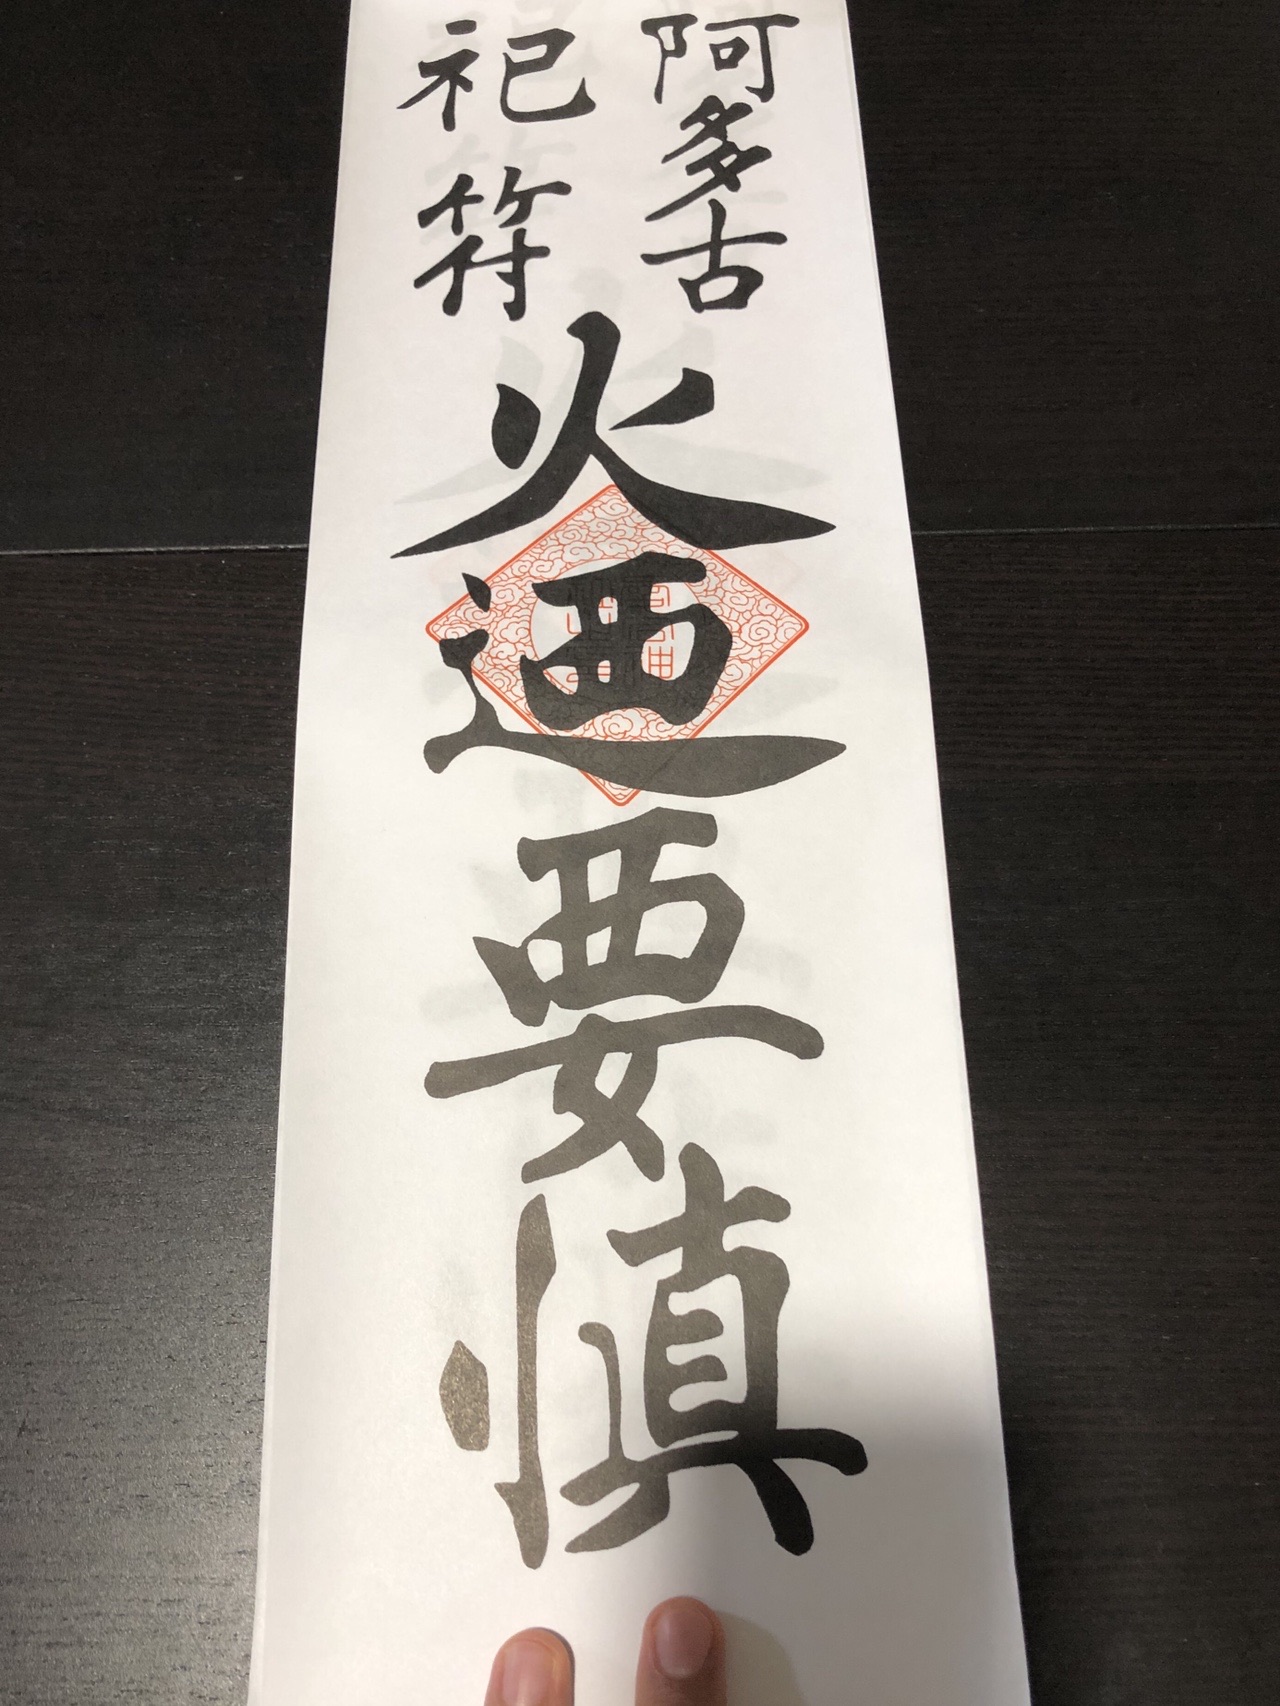 阿多古
祀符
火迺要慎